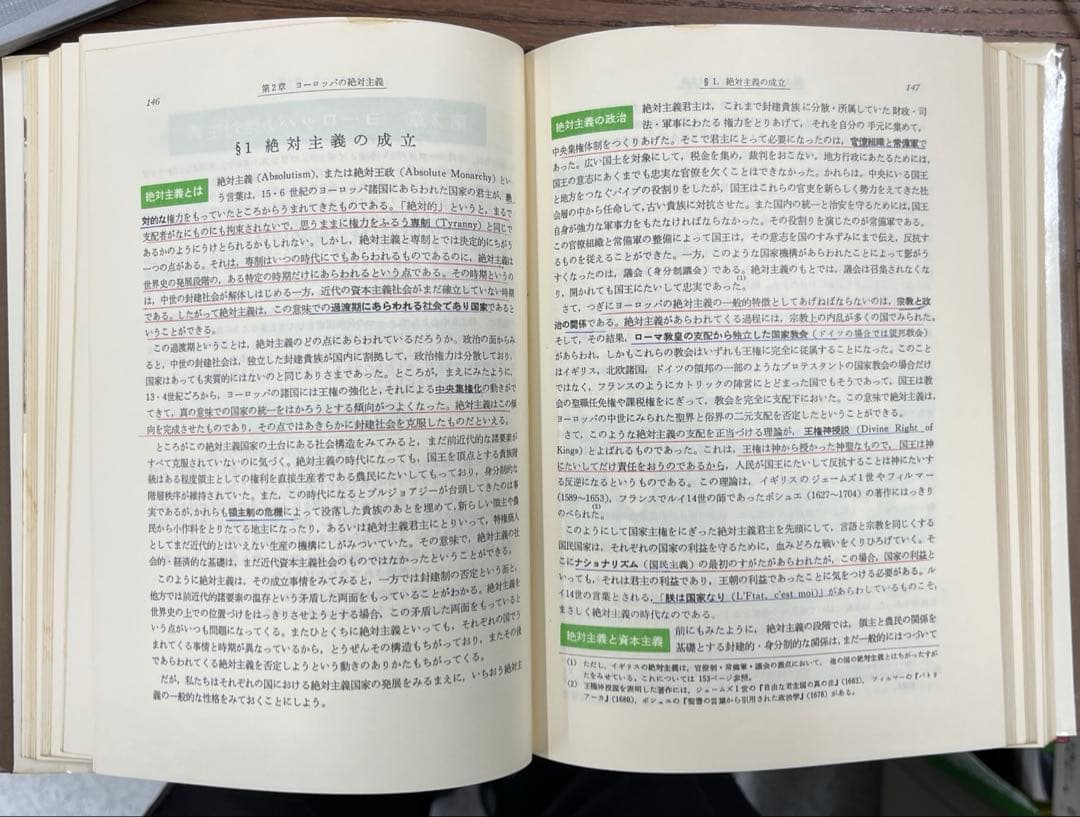 146
第2章 ヨーロッパの絶対主義
§1 絶対主義の成立
絶対主義とは
絶対主義(Absolutism),または絶対王政(Absolute Monarchy)とい
う言葉は,15・6世紀のヨーロッパ諸国にあらわれた国家の君主が,絶
対的な権力をもっていたところからうまれてきたものである。「絶対的」というと,まるで
支配者がなにものにも拘束されないで,思うままに権力をふるう専制(Tyranny)と同じで
あるかのようにうけとられるかもしれない。しかし,絶対主義と専制とでは決定的にちがう
一つの点がある。それは,専制はいつの時代にでもあらわれるものであるのに,絶対主義は
世界史の発展段階の,ある特定の時期だけにあらわれるという点である。その時期というの
は,中世の封建社会が解体しはじめる一方,近代の資本主義社会がまだ確立していない時期
である。したがって絶対主義は,この意味での過渡期にあらわれる社会であり国家であると
いうことができる。
この過渡期ということは,絶対主義のどの点にあらわれているだろうか。政治の面からみ
ると,中世の封建社会は,独立した封建貴族が国内に割拠して,政治権力は分散しており,
国家はあっても実質的にはないのと同じありさまであった。ところが,まえにみたように,
13・4世紀ごろから,ヨーロッパの諸国には王権の強化と,それによる中央集権化の動きがで
てきて,真の意味での国家の統一をはかろうとする傾向がつよくなった。絶対主義はこの傾
向を完成させたものであり,その点ではあきらかに封建社会を克服したものだといえる。
ところがこの絶対主義国家の土台にある社会構造をみてみると,まだ前近代的な諸要素が
すべて克服されていないのに気づく。絶対主義の時代になっても,国王を頂点とする貴族階
級はある程度領主としての権利を直接生産者である農民にたいしてもっており,身分制的な
階層秩序が維持されていた。また,この時代になるとブルジョアジーが台頭してきたのは事
実であるが,かれらも領主制の危機によって没落した貴族のあとを埋めて,新らしい領主や農
民から小作料をとりたてる地主になったり,あるいは絶対王君主にとりいって,特権商人
としてまだ近代的とはいえない生産の機構にしがみついていた。その意味で,絶対主義の社
会的・経済的な基礎は,まだ近代資本主義社会のものではなかったということができる。
このように絶対主義は,その成立事情をみてみると,一方では封建制の否定という面と,
他方では前近代的諸要素の温存という矛盾した両面をもっていることがわかる。絶対主義を
世界史の上での位置づけをはっきりさせようとする場合,この矛盾した両面をもっていると
いう点がいつも問題になってくる。またひとくちに絶対主義といっても,それぞれの国でう
まれてくる事情と時期が異なっているから,とうぜんその構造もちがっており,またその後
であらわれてくる絶対主義を否定しようという動きのありかたもちがってくる。
だが,私たちはそれぞれの国における絶対主義国家の発展をみるまえに,いちおう絶対主
義の一般的な性格をみておくことにしよう。
§1. 絶対主義の成立
147
絶対主義の政治
絶対主義君主は,これまで封建貴族に分散・所属していた財政・司
法・軍事にわたる権力をとりあげて,それを自分の手元に集めて,
中央集権体制をつくりあげた。そこで君主にとって必要になったのは,官僚組織と常備軍で
あった。広い国土を対象にして,税金を集め,裁判をおこない,地方行政にあたるためには,
国王の意志にあくまでも忠実な官僚を欠くことはできなかった。かれらは,中央にいる国王
と地方をつなぐパイプの役割りをしたが,国王はこれらの官吏を新らしく勢力をえてきた社
会層の中から任命して,古い貴族に対抗させた。また国内の統一と治安を守るためには,国王
自身が強力な軍事力をもたなければならなかった。その役割りを演じたのが常備軍である。
この官僚組織と常備軍の整備によって国王は,その意志を国のすみずみにまで伝え,反抗す
るものを従えることができた。一方,このような国家機構があらわれたことによって影がう
すくなったのは,議会(身分制議会)である。絶対主義のもとでは,議会は召集されなくな
り,開かれても国王にたいして忠実であった。(1)
さて,つぎにヨーロッパの絶対主義の一般的特徴としてあげねばならないのは,宗教と政
治の関係である。絶対主義があらわれてくる過程には,宗教上の内乱が多くの国でみられた。
そして,その結果,ローマ教皇の支配から独立した国家教会(ドイツの場合では領邦教会)
があらわれ,しかもこれらの教会はいずれも王権に完全に従属することになった。このこと
はイギリス,北欧諸国,ドイツの領邦の一部のようなプロテスタントの国家教会の場合だけ
ではなく,フランスのようにカトリックの陣営にとどまった国でもそうであって,国王は教
会の聖職任免権や課税権をにぎって,教会を完全に支配下においた。この意味で絶対主義は,
ヨーロッパの中世にみられた聖界と俗界の二元支配を否定したということができる。
さて,このような絶対主義の支配を正当づける理論が,王権神授説(Divine Right of
Kings)とよばれるものであった。これは,王権は神から授かった神聖なもので,国王は神
にたいしてだけ責任をおうのであるから,人民が国王にたいして反抗することは神にたいす
る反逆になるというものである。この理論は,イギリスのジェームズ1世やフィルマー
(1589〜1653),フランスでルイ14世の師であったボシュエ(1627〜1704)の著作にはっきり
のべられた。(2)
このようにして国家主権をにぎった絶対主義君主を先頭にして,言語と宗教を同じくする
国民国家は,それぞれの国家の利益を守るために,血みどろな戦いをくりひろげていく。そ
こにナショナリズム(国民主義)の最初のすがたがあらわれたが,この場合,国家の利益と
いっても,それは君主の利益であり,王朝の利益であったことに気をつける必要がある。ル
イ14世の言葉とされる,「朕は国家なり(L'Ftat, c'est moi)」があらわしているものこそ,
まさしく絶対主義の時代なのである。
絶対主義と資本主義
前にもみたように,絶対主義の段階では,領主と農民の関係を
基礎とする封建的・身分制的な関係は,まだ一般的にはつづいて
(1) ただし,イギリスの絶対主義は,官僚制・常備軍・議会の諸点において,他の国の絶対主義とはちがったすが
たをみせている。これについては153ページ参照。
(2) 王権神授説を表明した著作には,ジェームズ1世の『自由な君主国の真の法』(1603),フィルマーの『パトリ
アーカ』(1680),ボシュエの『聖書の言葉から引用された政治学』(1678)がある。